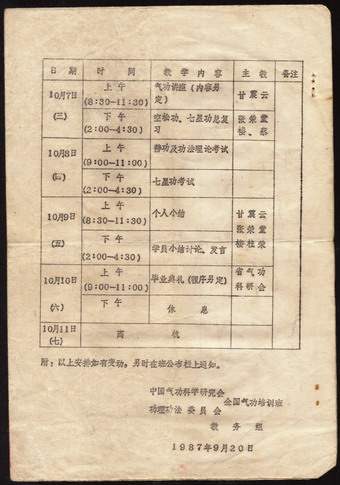 日期 时间 教学内容 主教 备注
10月7日 上午 气功讲班（内容另
(8:30—11:30) 定） 甘震云
(三) 下午 空松功、七星功总复 张荣堂
(2:00—4:30) 习
10月8日 上午 静功及功法理论考试
(9:00—11:00)
(四) 下午 七星功考试
(2:00—4:30)
10月9日 上午 个人小结 甘震云
(8:30—11:30) 张荣堂
(五) 下午 学员小结讨论、发言
(2:00—4:30)
10月10日 上午 毕业典礼（程序另定） 省气功
(9:00—11:00) 科研会
(六) 下午 休息
10月11日 离杭
(七)
附：以上安排如有变动，另时在班公布栏上通知。
中国气功科学研究会
全国气功培训班
功理功法委员会
教务组
1987年9月20日